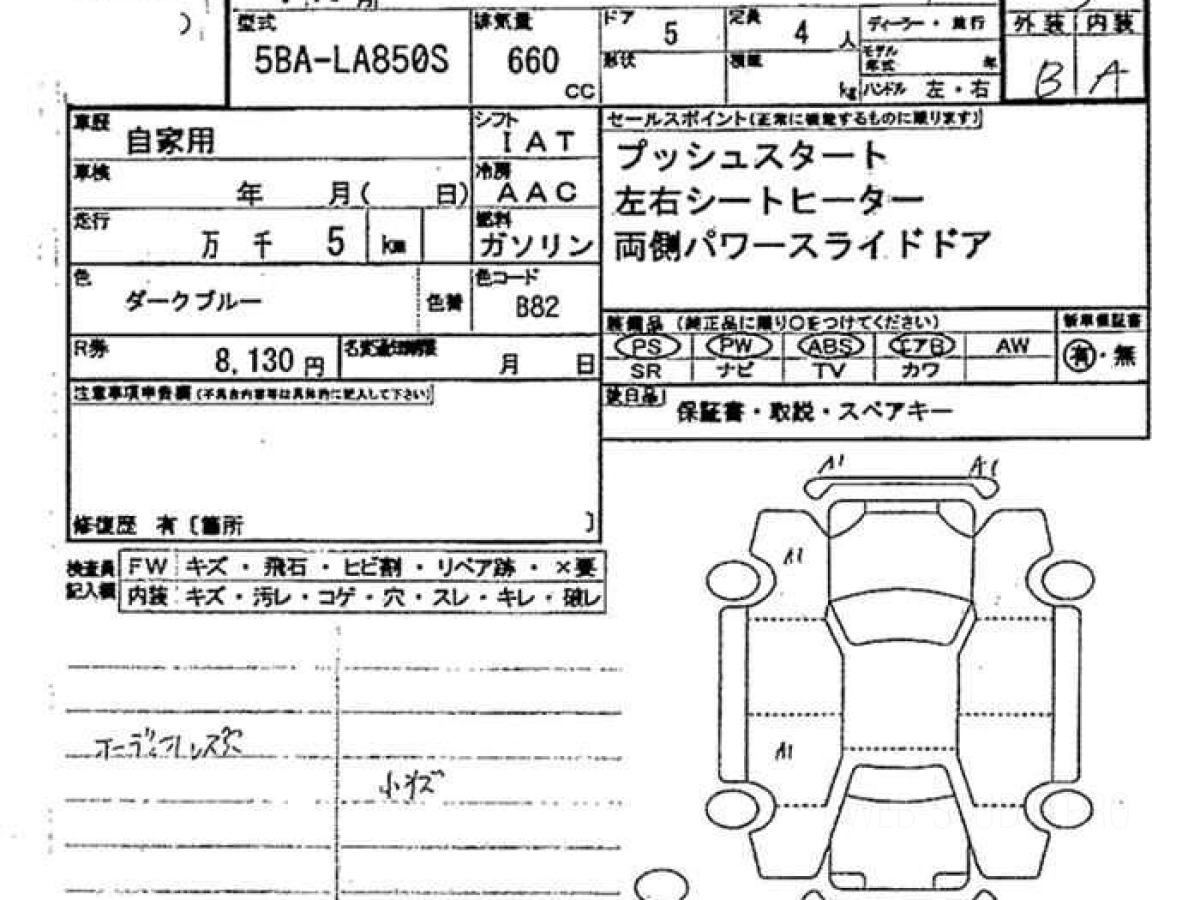 型式
5BA-LA850S
排気量
660
cc
ドア
5
定員
4
人
形状
積載
kg
ディーラー・並行
モデル
年式
年
ハンドル 左・右
外装 内装
B A
車歴
自家用
シフト
IAT
車検
年 月( 日)
冷房
AAC
走行
万 千 5 km
燃料
ガソリン
色
ダークブルー
色替
色コード
B82
R券
8,130 円
名変通知期限
月 日
注意事項申告欄(不具合内容等は具体的に記入して下さい)
修復歴 有〔箇所 〕
セールスポイント(正常に機能するものに限ります)
プッシュスタート
左右シートヒーター
両側パワースライドドア
装備品 (純正品に限り○をつけてください)
PS PW ABS エアB AW
SR ナビ TV カワ
新車保証書
有・無
後日品
保証書・取説・スペアキー
検査員
記入欄
FW キズ・飛石・ヒビ割・リペア跡・×要
内装 キズ・汚レ・コゲ・穴・スレ・キレ・破レ
オーディオレス穴
小キズ
A1 A1
A1
A1